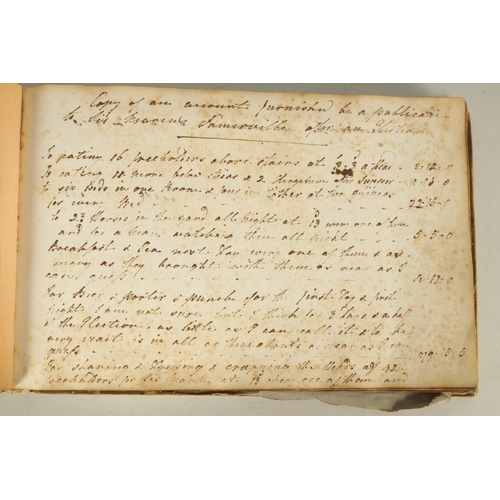 Copy of an account furnished by a publican
to Sir Marcus Somerville after an Election
To eating 16 freeholders above stairs at 3-3 a head - 2-12-0
To eating 11 more below stairs & 2 Clergymen after Supper
to six beds in one Room & four in other at two guineas
for every Bed 22-15-0
To 23 Horses in the yard all night at 13 every one of them
and for a man watching them all night 5-5-0
Breakfast & Tea next Day every one of them & as
many as they brought with them as near as I
can guess -12-0
For Beer & porter & punch for the first Day & first
night I am not sure but I think for 3 Days & a half
of the Election, as little as I can call it & to be
very exact is in all or thereabouts as near as I can
guess 79-15-
For shaving & Dressing & cropping the Heads of 42
freeholders for Sir Marcus at 13 every one of them and